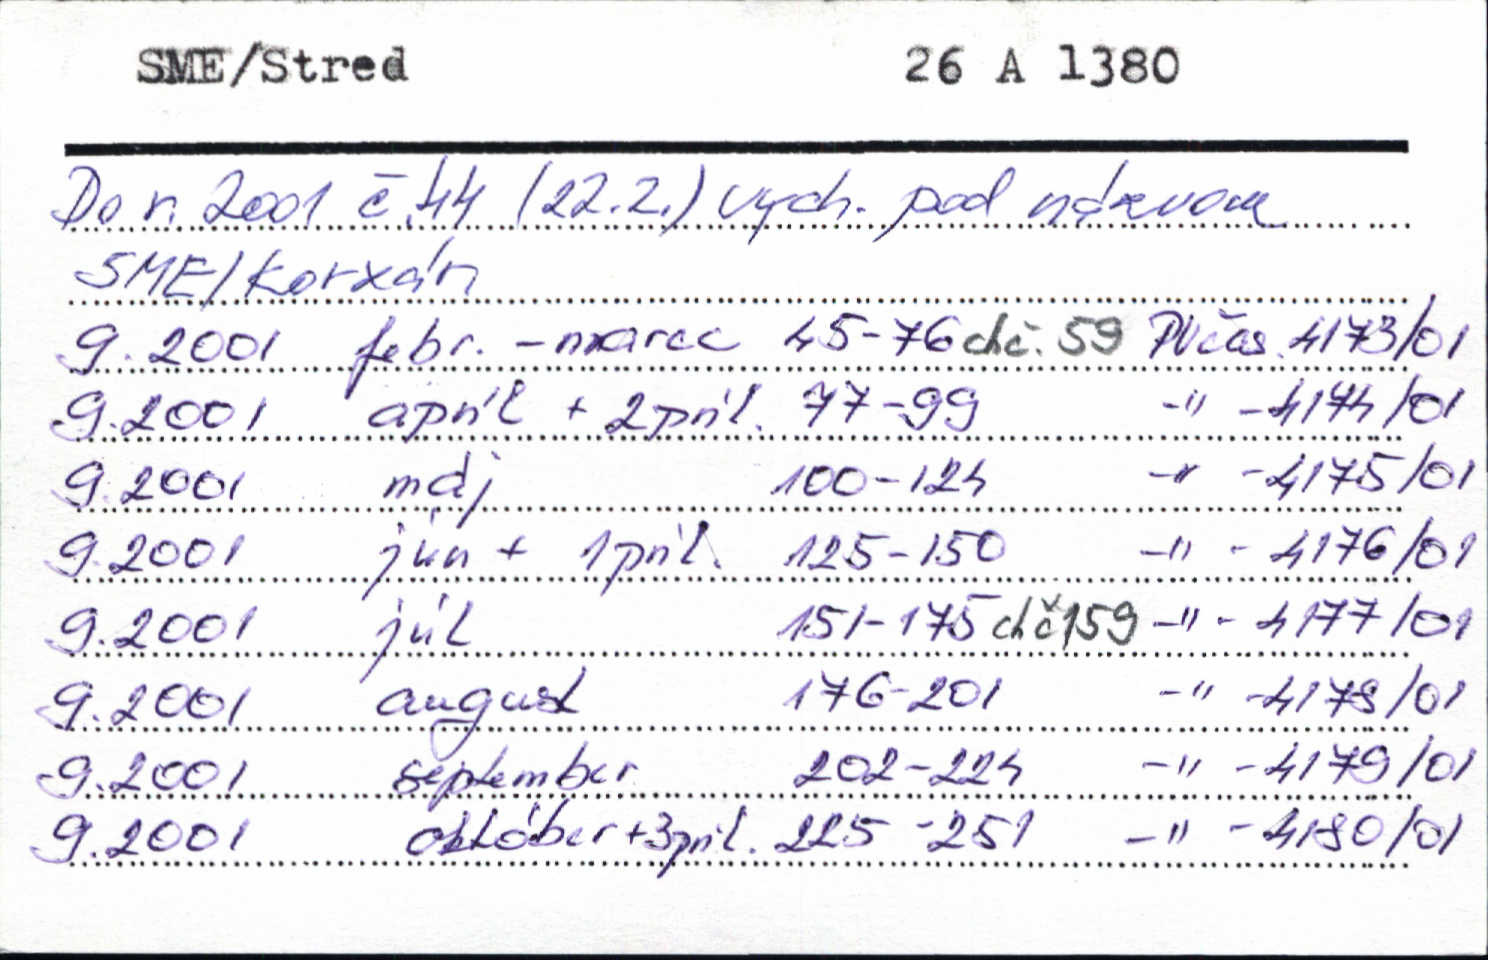 SME/Stred 26 A 1380
Do r. 2001 č. 44 (22.2.) vych. pod názvom
SME/Korzár
9.2001 febr. - marec 45-76 chč. 59 PVčas. 4173/01
9.2001 apríl + 2 príl. 77-99 -"- 4174/01
9.2001 máj 100-124 -"- 4175/01
9.2001 jún + 1 príl. 125-150 -"- 4176/01
9.2001 júl 151-175 chč 159 -"- 4177/01
9.2001 august 176-201 -"- 4178/01
9.2001 september 202-224 -"- 4179/01
9.2001 október + 3 príl. 225-251 -"- 4180/01